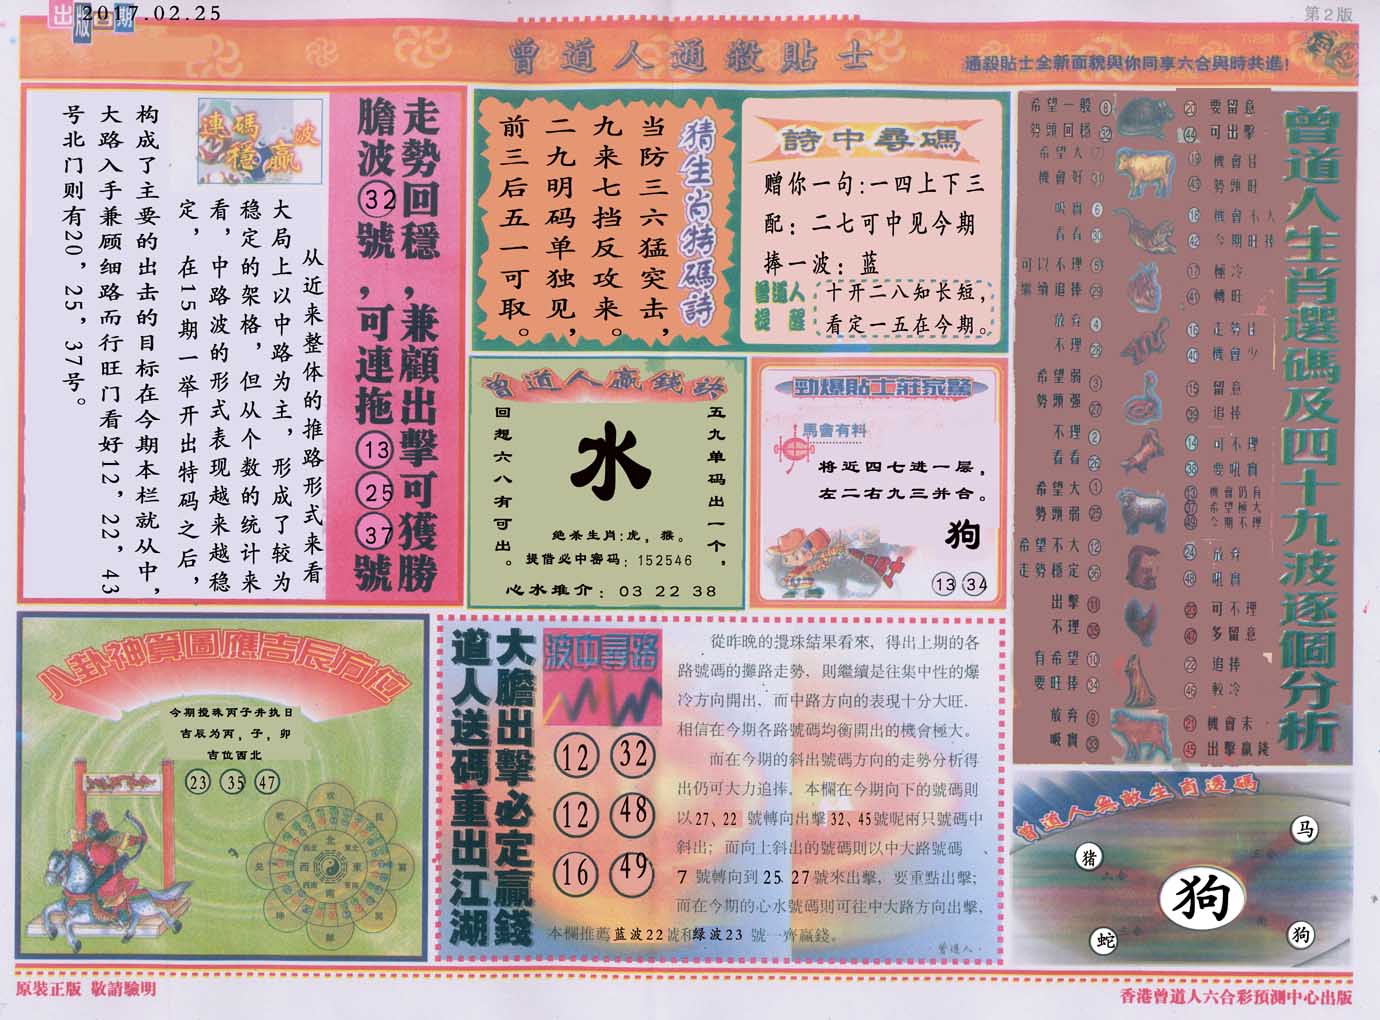 出版日期
2017.02.25
第2版
曾道人通殺貼士
通殺貼士全新面貌與你同享六合與時共進!
走勢回穩,兼顧出擊可獲勝
膽波32號,可連拖13 25 37號
連碼波
穩贏
从近来整体的推路形式来看
大局上以中路为主,形成了较为
稳定的架格,但从个数的统计来
看,中路波的形式表现越来越稳
定,在15期一举开出特码之后,
构成了主要的出击的目标在今期本栏就从中,
大路入手兼顾细路而行旺门看好12,22,43
号北门则有20,25,37号。
猜生肖特碼詩
当防三六猛突击,
九来七挡反攻来。
二九明码单独见,
前三后五一可取。
詩中尋碼
赠你一句:一四上下三
配:二七可中见今期
捧一波:蓝
曾道人
提醒
十开二八知长短,
看定一五在今期。
曾道人贏錢詩
五九单码出一个,
回想六八有可出。
水
绝杀生肖:虎,猴。
提借必中密码:152546
心水推介:03 22 38
勁爆貼士莊家驚
馬會有料
将近四七进一层,
左二右九三并合。
狗
13 34
曾道人生肖選碼及四十九波逐個分析
希望一般 8
勢頭回穩 32
20 要留意
44 可出擊
希望大 7
機會好 31
19 機會佳
43 勢頭旺
吸實 6
看看 30
18 機會不大
42 今期旺捧
可以不理 5
繼續追捧 29
17 極冷
41 轉旺
放弃 4
不理 28
16 走勢佳
40 機會少
希望弱 3
勢頭强 27
15 留意
39 追捧
不理 2
看看 26
14 可不理
38 要吼實
希望大 1
勢頭弱 25
13 機會仍有
37 希望極大
49 今期不理
希望不大 12
走勢穩定 36
24 放弃
48 吼實
出擊 11
不理 35
23 可不理
47 多留意
有希望 10
要旺捧 34
22 追捧
46 較冷
放弃 9
吸實 33
21 機會未
45 出擊贏錢
八卦神算圖應吉辰方位
今期搅珠丙子井执日
吉辰为丙,子,卯
吉位西北
23 35 47
北
東
南
西
大膽出擊必定贏錢
道人送碼重出江湖
波中尋路
12 32
12 48
16 49
從昨晚的攪珠結果看來,得出上期的各
路號碼的攤路走勢,則繼續是往集中性的爆
冷方向開出,而中路方向的表現十分大旺.
相信在今期各路號碼均衡開出的機會極大。
而在今期的斜出號碼方向的走勢分析得
出仍可大力追捧,本欄在今期向下的號碼則
以27、22 號轉向出擊32、45號呢兩只號碼中
斜出;而向上斜出的號碼則以中大路號碼、
7 號轉向到25 27號來出擊,要重點出擊;
而在今期的心水號碼則可往中大路方向出擊,
本欄推薦蓝波22號和绿波23 號一齊贏錢。
曾道人·
曾道人無敵生肖透碼
猪
马
狗
蛇
狗
原裝正版 敬請驗明
香港曾道人六合彩預測中心出版